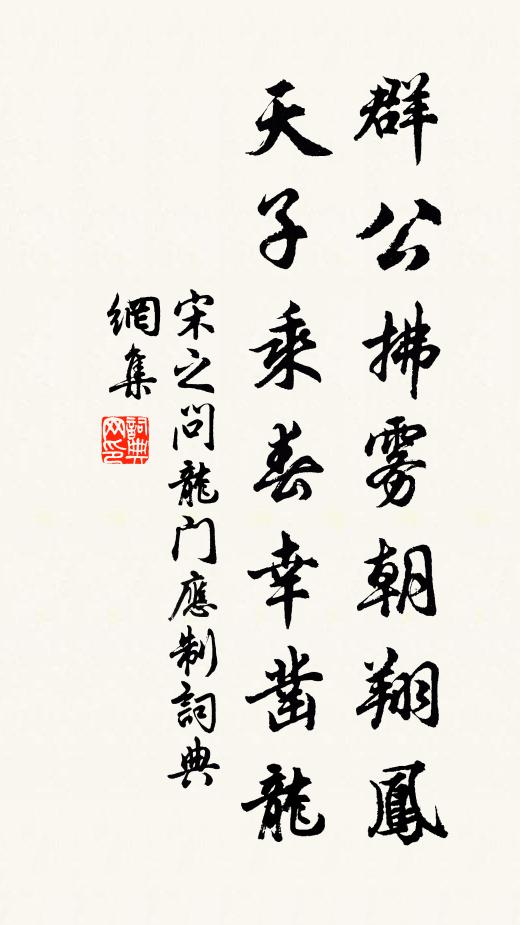 群公拂雾朝翔鳳
天子乘春幸凿龍
宋之问龍门應制詞典
網集
詞典
网印